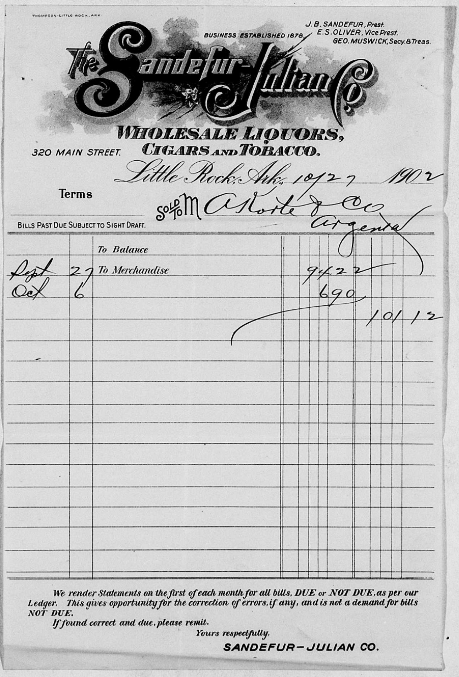 THOMPSON-LITTLE ROCK, ARK
J. B. SANDEFUR, Prest.
BUSINESS ESTABLISHED 1878
E. S. OLIVER, Vice Prest.
GEO. MUSWICK, Secy. & Treas.
The Sandefur-Julian Co.
WHOLESALE LIQUORS,
CIGARS AND TOBACCO.
320 MAIN STREET.
Little Rock, Ark. 10/27 1902
Terms
SOLD TO M A Korte & Co
Argenta
BILLS PAST DUE SUBJECT TO SIGHT DRAFT.
To Balance
Sept 27 To Merchandise 94 22
Oct 6 6 90
101 12
We render Statements on the first of each month for all bills, DUE or NOT DUE, as per our
Ledger. This gives opportunity for the correction of errors, if any, and is not a demand for bills
NOT DUE.
If found correct and due, please remit.
Yours respectfully,
SANDEFUR-JULIAN CO.